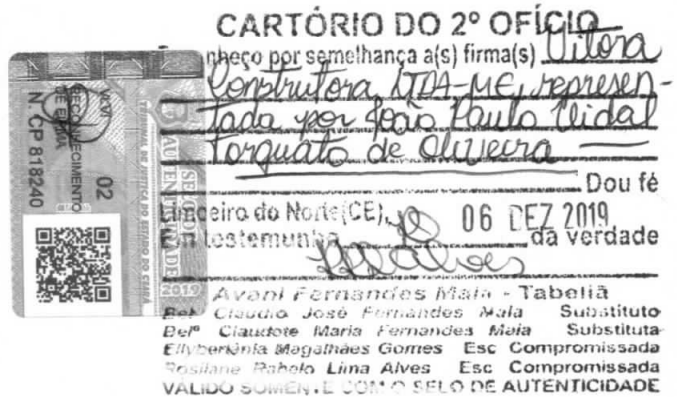 CARTÓRIO DO 2º OFÍCIO
nheço por semelhança a(s) firma(s) Vitora
Construtora LTDA-ME, represen-
tada por João Paulo Vidal
Torquato de Oliveira
Dou fé
Limoeiro do Norte(CE), 06 DEZ 2019
Em testemunho da verdade
Avani Fernandes Maia - Tabeliã
Bel Claudio José Fernandes Maia Substituto
Belª Claudete Maria Fernandes Maia Substituta
Ellybertênia Magalhães Gomes Esc Compromissada
Rosilane Rabelo Lima Alves Esc Compromissada
VÁLIDO SOMENTE COM O SELO DE AUTENTICIDADE
02
RECONHECIMENTO
DE FIRMA
N. CP 818240
TRIBUNAL DE JUSTIÇA DO ESTADO DO CEARÁ
SELO DE
AUTENTICIDADE
2019